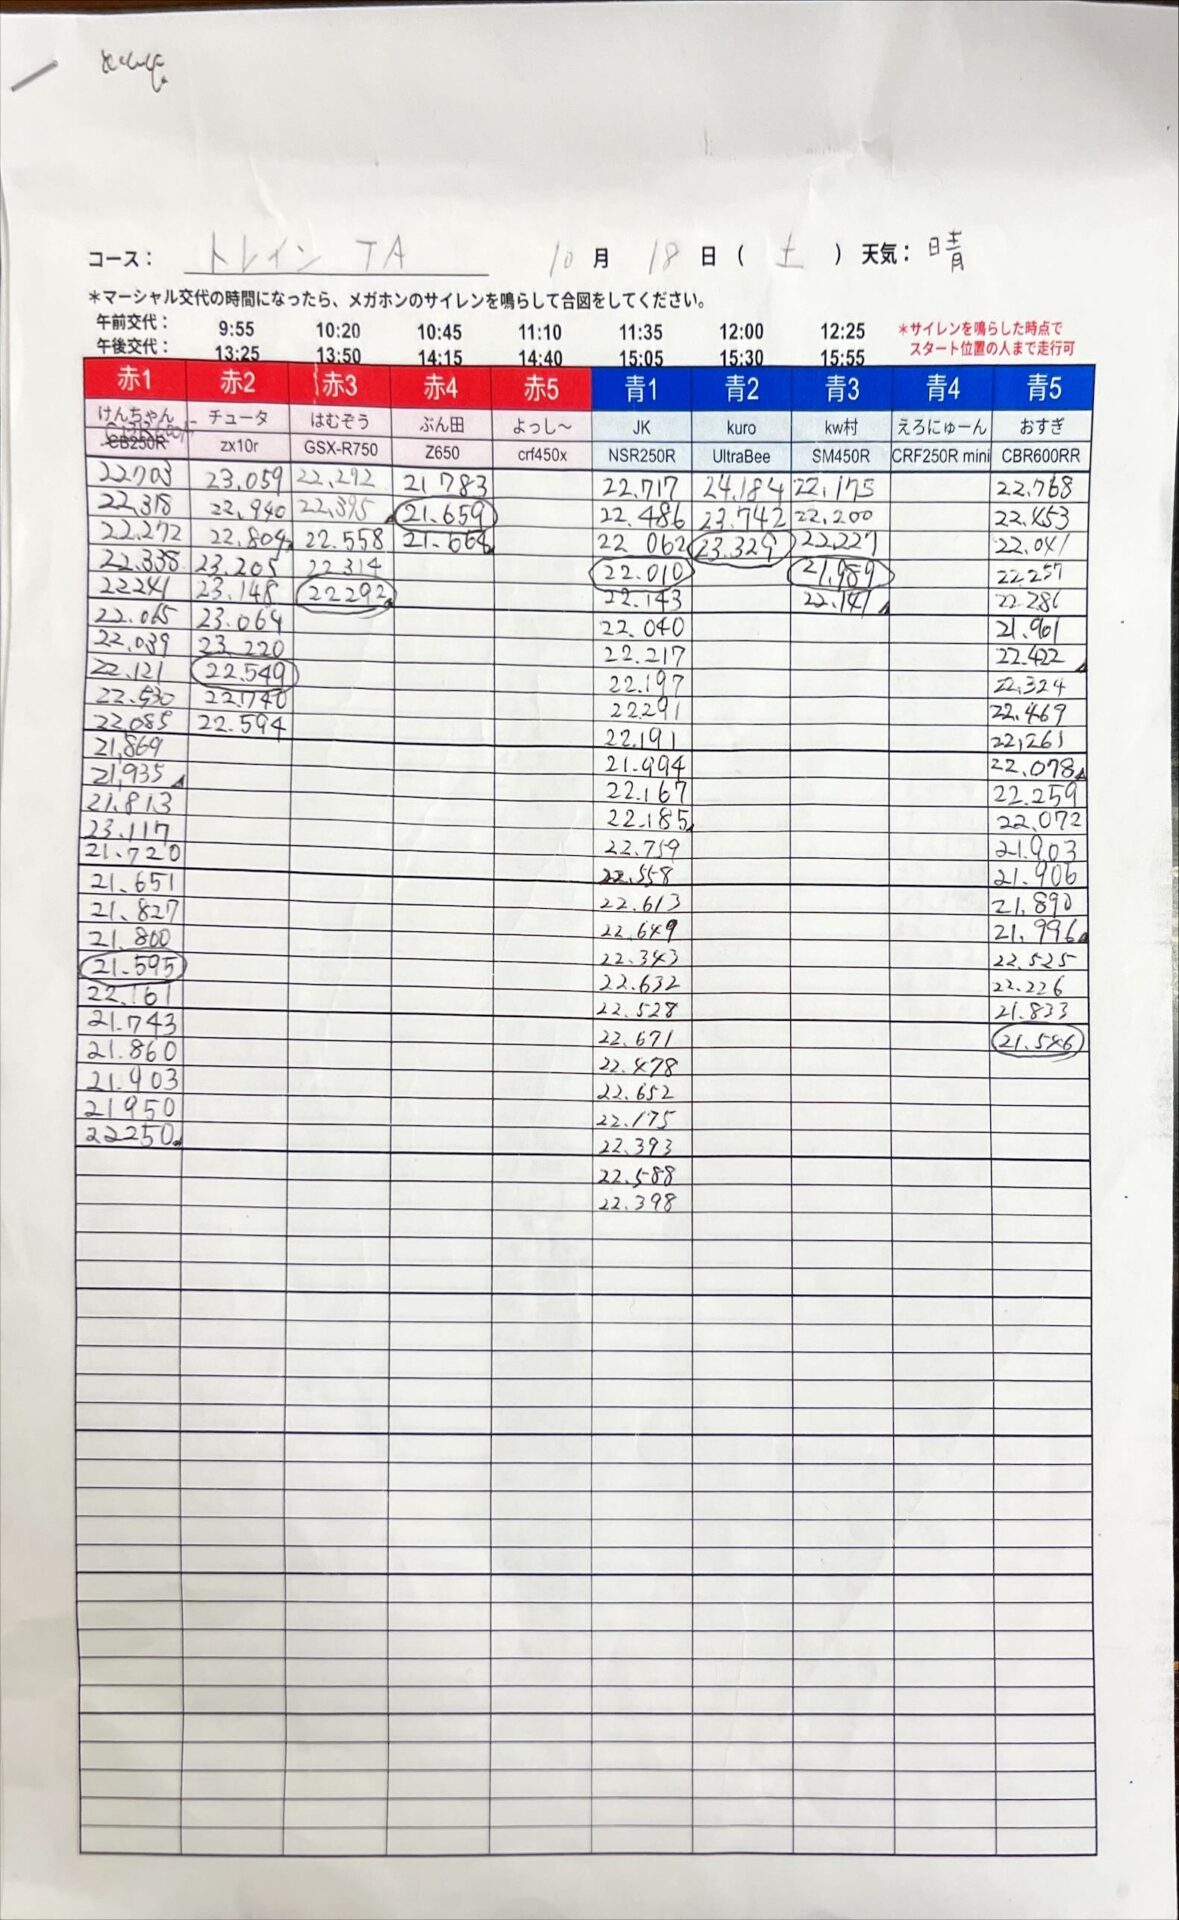 コース： トレイン TA 10 月 18 日 （ 土 ） 天気： 晴
＊マーシャル交代の時間になったら、メガホンのサイレンを鳴らして合図をしてください。
午前交代： 9:55 10:20 10:45 11:10 11:35 12:00 12:25 ＊サイレンを鳴らした時点で
午後交代： 13:25 13:50 14:15 14:40 15:05 15:30 15:55 スタート位置の人まで走行可
赤1 赤2 赤3 赤4 赤5 青1 青2 青3 青4 青5
けんちゃん チュータ はむぞう ぶん田 よっし～ JK kuro kw村 えろにゅーん おすぎ
CB250R zx10r GSX-R750 Z650 crf450x NSR250R UltraBee SM450R CRF250R mini CBR600RR
22.703 23.059 22.292 21.783 22.717 24.184 22.175 22.768
22.318 22.940 22.395 21.659 22.486 23.742 22.200 22.453
22.272 22.809 22.558 21.664 22.062 23.329 22.227 22.041
22.338 23.205 22.314 22.010 21.989 22.257
22241 23.148 22292 22.143 22.141 22.286
22.065 23.064 22.040 21.961
22.039 23.220 22.217 22.422
22.121 22.549 22.197 22.324
22.530 22.740 22.291 22.469
22.085 22.594 22.191 22.261
21.869 21.994 22.078
21.935 22.167 22.259
21.813 22.185 22.072
23.117 22.759 21.903
21.720 22.558 21.906
21.651 22.613 21.890
21.827 22.649 21.996
21.800 22.343 22.525
21.595 22.632 22.226
22.161 22.528 21.833
21.743 22.671 21.546
21.860 22.478
21.903 22.652
21950 22.175
22250 22.393
22.588
22.398